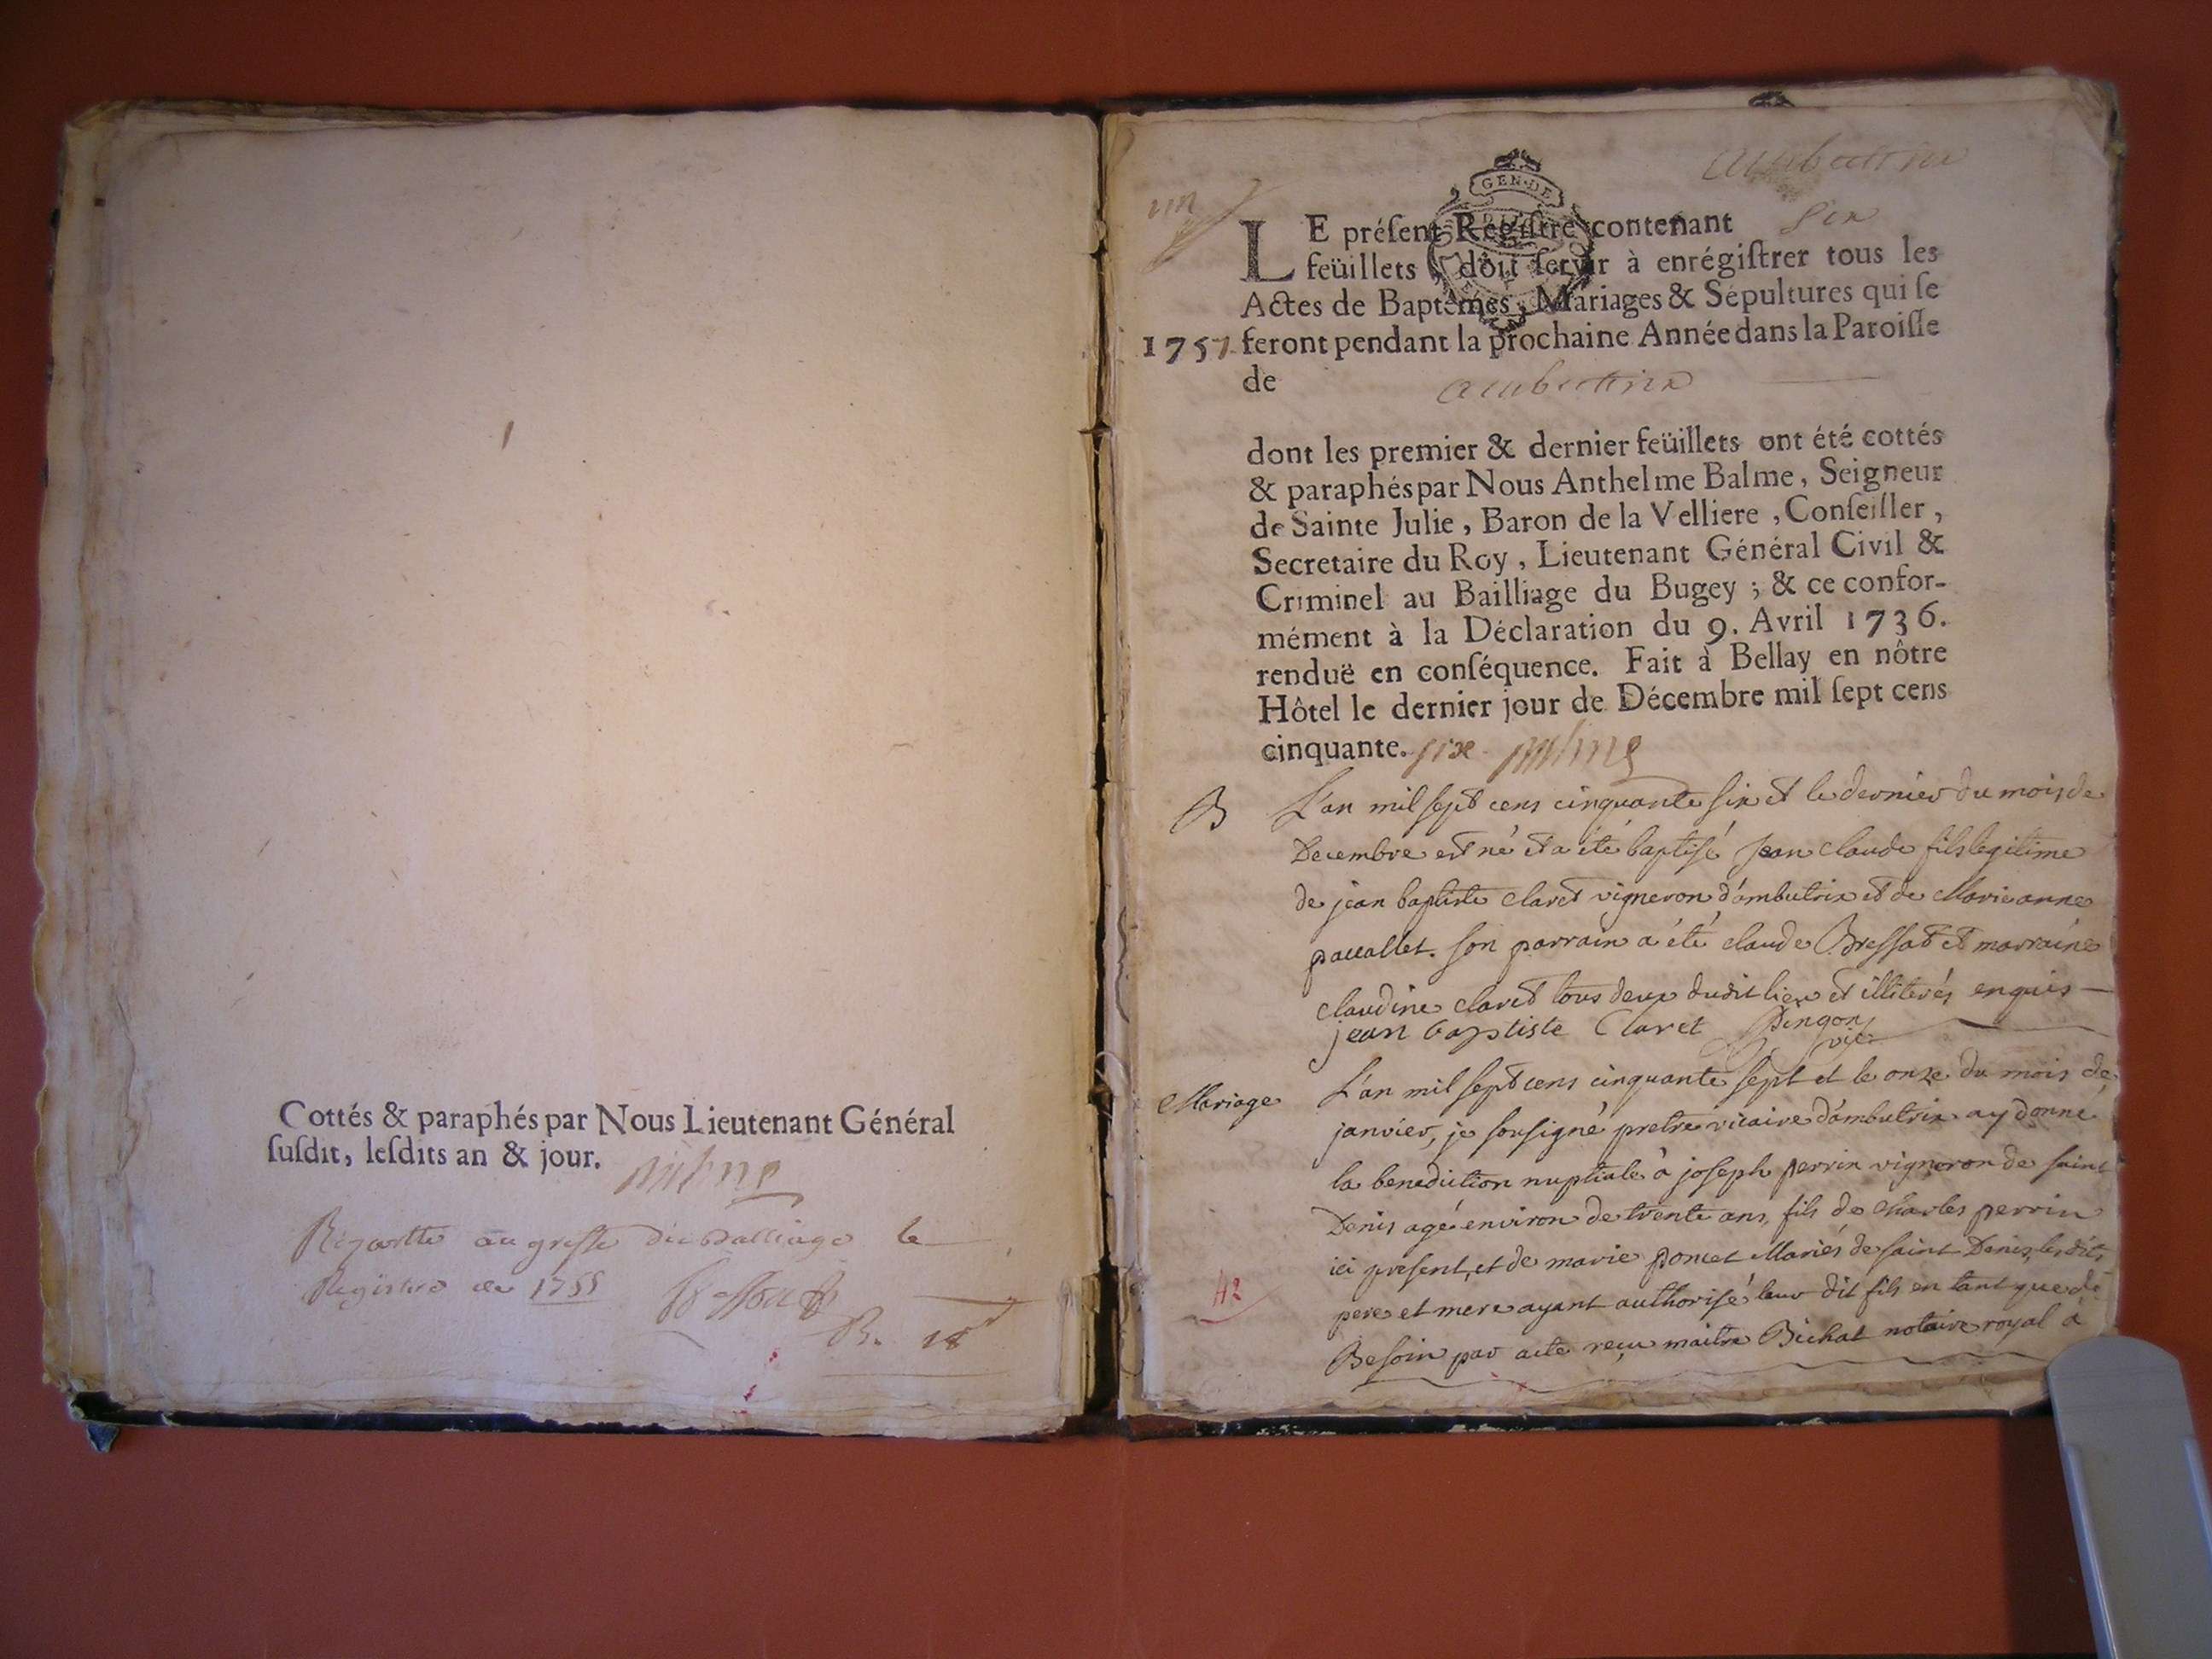 Cottés & paraphés par Nous Lieutenant Général
ſuſdit, leſdits an & jour.
au greffe du Balliage le
Registre de 1755
B. 18
un
GEN·DE
LE préſent Regiſtre contenant six
feüillets, doit ſervir à enrégiſtrer tous les
Actes de Baptêmes, Mariages & Sépultures qui ſe
1757 feront pendant la prochaine Année dans la Paroiſſe
de ambutrix
dont les premier & dernier feüillets ont été cottés
& paraphés par Nous Anthelme Balme, Seigneur
de Sainte Julie, Baron de la Velliere, Conſeiller,
Secretaire du Roy, Lieutenant Général Civil &
Criminel au Bailliage du Bugey; & ce confor-
mément à la Déclaration du 9. Avril 1736.
renduë en conſéquence. Fait à Bellay en nôtre
Hôtel le dernier jour de Décembre mil ſept cens
cinquante. six
B L'an mil sept cens cinquante six et le dernier du mois de
Decembre est né et a été baptisé jean claude fils legitime
de jean baptiste claret vigneron d'ambutrix et de Marie anne
paccallet. son parrain a été claude Bressat et marraine
claudine claret tous deux dudit lieu et illiterés enquis
jean baptiste Claret Dingon vic
Mariage L'an mil sept cens cinquante sept et le onze du mois de
janvier, je soussigné pretre vicaire d'ambutrix ay donné
la benediction nuptiale à joseph perrin vigneron de saint
Denis agé environ de trente ans, fils de charles perrin
ici present, et de marie poncet Mariés de saint Denis, lesdits
42 pere et mere ayant authorisé leur dit fils en tant que de
Besoin par acte reçu maitre Bichat notaire royal à